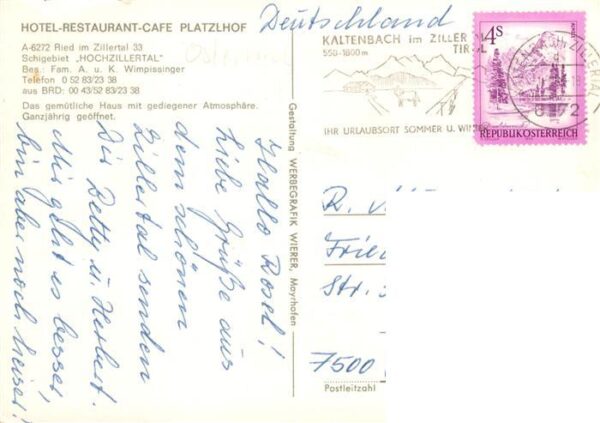 HOTEL-RESTAURANT-CAFE PLATZLHOF
A-6272 Ried im Zillertal 33
Schigebiet „HOCHZILLERTAL"
Bes.: Fam. A. u. K. Wimpissinger
Telefon 0 52 83/23 38
aus BRD: 00 43/52 83/23 38
Das gemütliche Haus mit gediegener Atmosphäre.
Ganzjährig geöffnet.
Österreich
Hallo Rosel!
Liebe Grüße aus
dem schönen
Zillertal senden
Dir Betty u. Herbert.
Mir geht es besser,
bin aber noch heiser!
Gestaltung WERBEGRAFIK WIERER, Mayrhofen
Deutschland
KALTENBACH im ZILLERTAL
TIROL
550-1800m
IHR URLAUBSORT SOMMER U. WINTER
4S
REPUBLIK ÖSTERREICH
6272
R.
Str.
7500
Postleitzahl